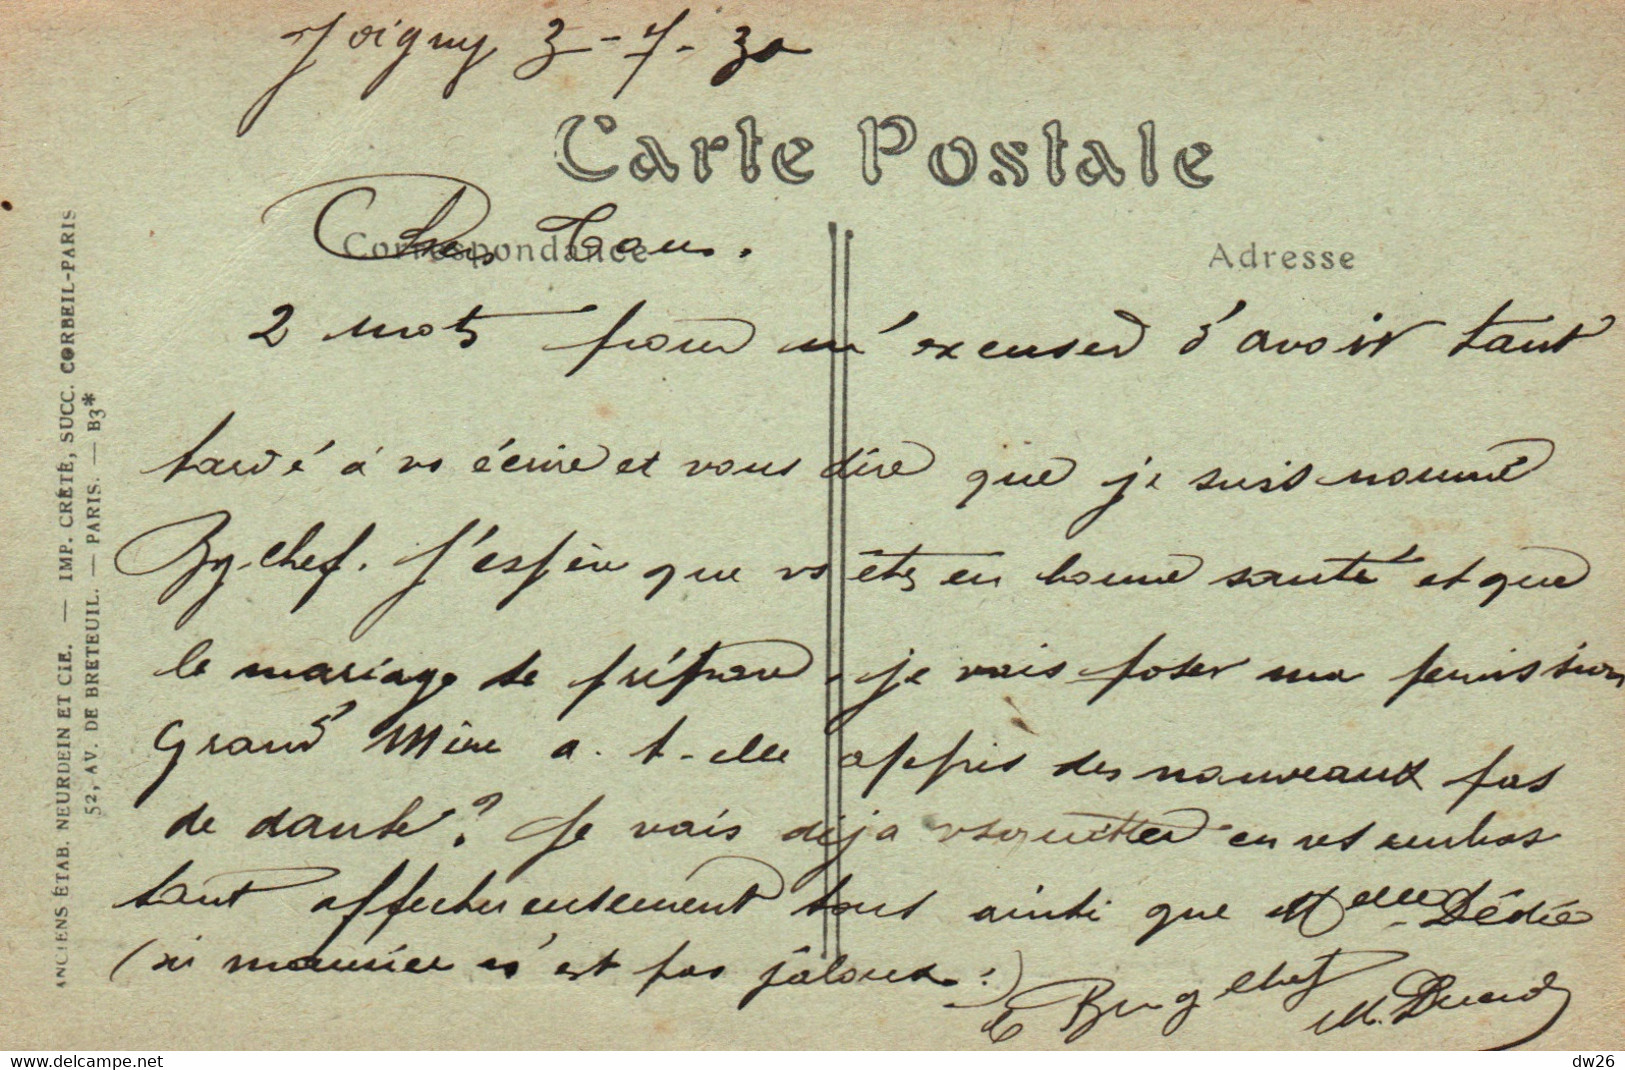 Joigny 3-7-30
Carte Postale
Correspondance
Adresse
Chers Tous.
2 mots pour m'excuser d'avoir tant
tardé à vs écrire et vous dire que je suis nommé
Bg-chef. J'espère que vs êtes en bonne santé et que
le mariage se prépare, je vais poser ma permission
Grand Mère a-t-elle appris des nouveaux pas
de danse? Je vais déjà vs quitter en vs embras
tant affectueusement tous ainsi que Melle Dédée
(si mannier n'est pas jaloux.:)
le Brig chef
M. Durand
ANCIENS ÉTAB. NEURDEIN ET CIE. — IMP. CRÉTÉ, SUCC. CORBEIL-PARIS
52, AV. DE BRETEUIL. — PARIS. — B3*
delcampe.net
dw26